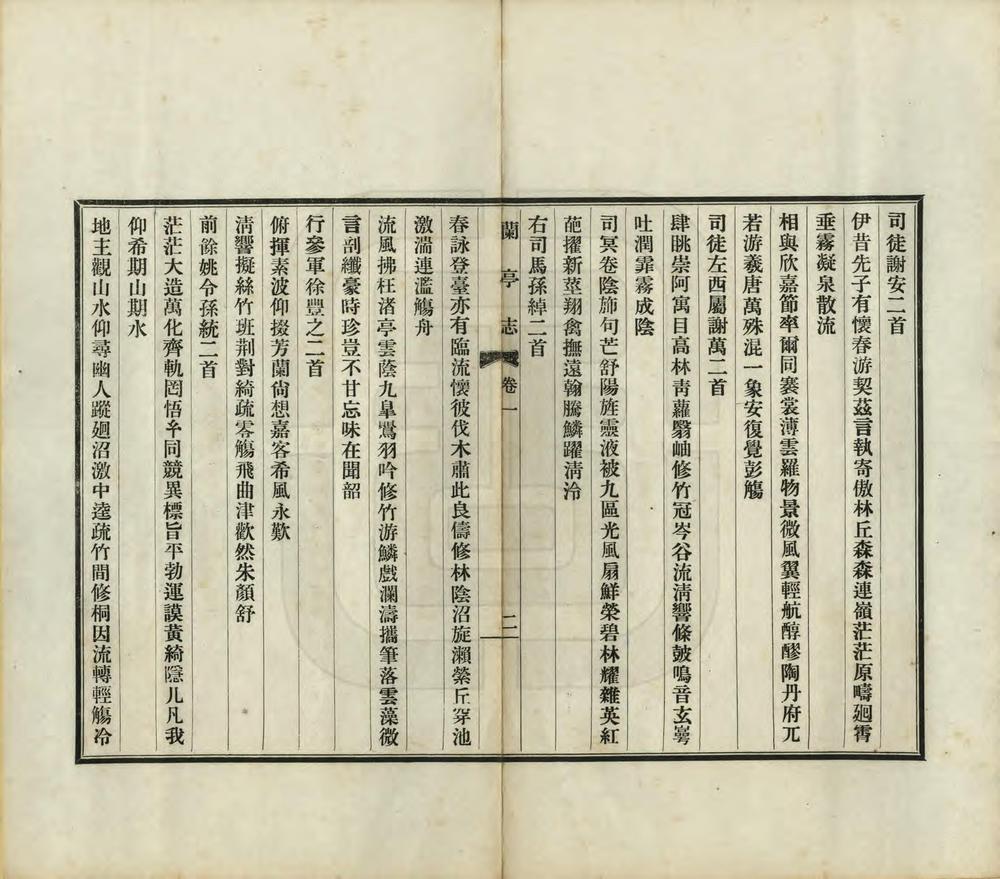 司徒謝安二首
伊昔先子有懷春游契茲言執寄傲林丘森森連嶺茫茫原疇迴霄
垂霧凝泉散流
相與欣嘉節率爾同褰裳薄雲羅物景微風翼輕航醇醪陶丹府兀
若游羲唐萬殊混一象安復覺彭觴
司徒左西屬謝萬二首
肆眺崇阿寓目高林靑蘿翳岫修竹冠岑谷流淸響條皷鳴音玄崿
吐潤霏霧成陰
司冥卷陰斾句芒舒陽旌靈液被九區光風扇鮮榮碧林耀雜英紅
葩擢新莖翔禽撫遠翰騰鱗躍淸泠
右司馬孫綽二首
蘭亭志
卷一
二
春詠登臺亦有臨流懷彼伐木肅此良儔修林陰沼旋瀨縈丘穿池
激湍連濫觴舟
流風拂枉渚亭雲蔭九臯鸎羽吟修竹游鱗戲瀾濤攜筆落雲藻微
言剖纖豪時珍豈不甘忘味在聞韶
行參軍徐豐之二首
俯揮素波仰掇芳蘭尙想嘉客希風永歎
淸響擬絲竹班荆對綺疏零觴飛曲津歡然朱顏舒
前餘姚令孫統二首
茫茫大造萬化齊軌罔悟同競異標旨平勃運謨黃綺隱几凡我
仰希期山期水
地主觀山水仰尋幽人蹤迴沼激中逵疏竹間修桐因流轉輕觴冷